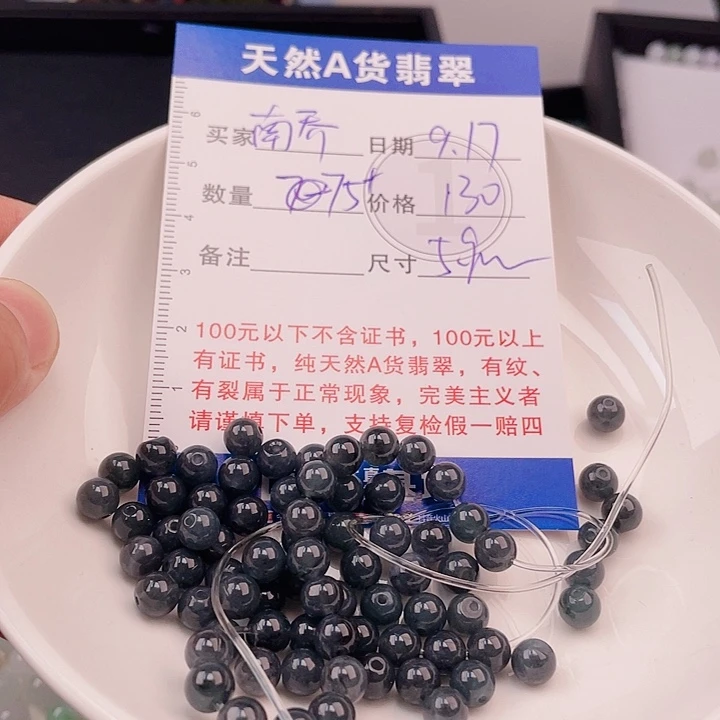 天然A货翡翠
买家 南乔 日期 9.17
数量 75+ 价格 130
备注 尺寸 5.9m
100元以下不含证书，100元以上
有证书，纯天然A货翡翠，有纹、
有裂属于正常现象，完美主义者
请谨慎下单，支持复检假一赔四
6
5
4
3
2
1